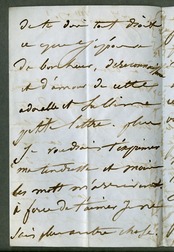 de te dire tout droit
ce que j'éprouve
de bonheur, de reconnaissance
et d'amour de cette
adorable et sublime
petite lettre
Je voudrais t'exprimer
ma tendresse et mais
les mots m'arrivent
à force de t'aimer je ne
sais plus autre chose.